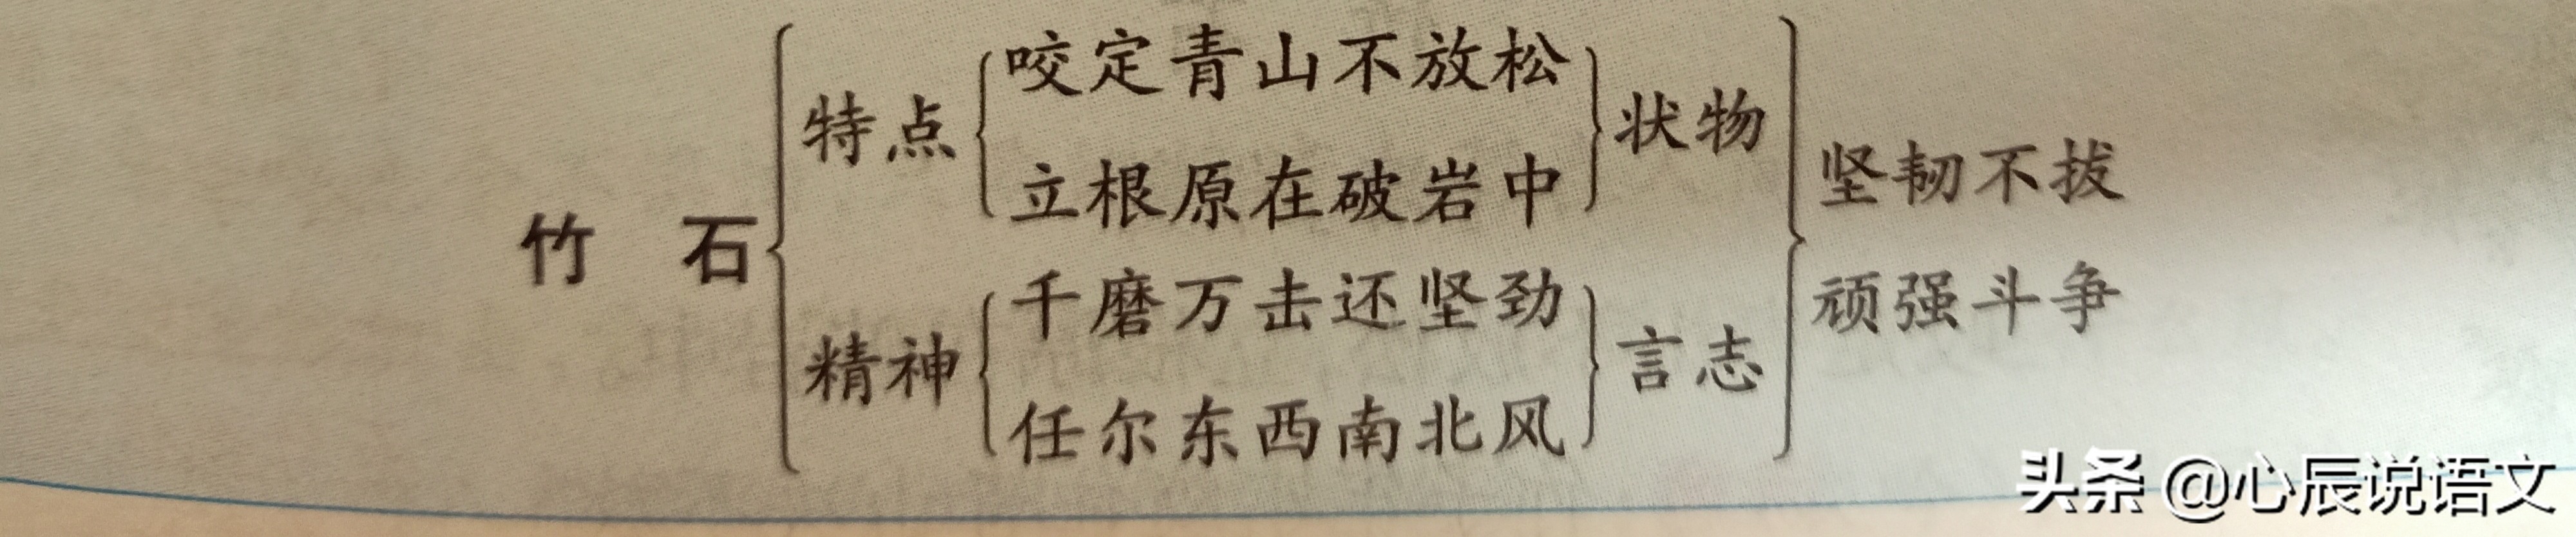 竹 石
特点
咬定青山不放松
立根原在破岩中
状物
精神
千磨万击还坚劲
任尔东西南北风
言志
坚韧不拔
顽强斗争
头条 @心辰说语文